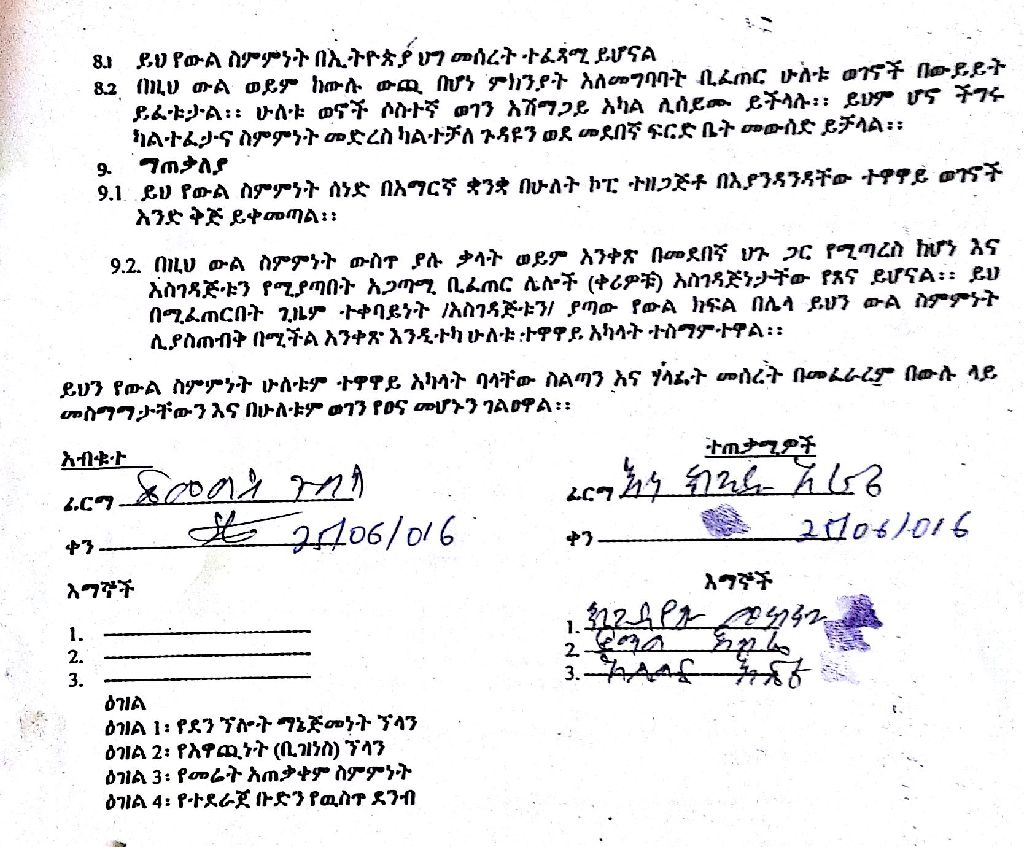 8.1 ይህ የውል ስምምነት በኢትዮጵያ ህግ መሰረት ተፈጻሚ ይሆናል
8.2 በዚህ ውል ወይም ከውሉ ውጪ በሆነ ምክንያት አለመግባባት ቢፈጠር ሁለቱ ወገኖች በውይይት
ይፈቱታል፡፡ ሁለቱ ወኖች ሶስተኛ ወገን አሸማጋይ አካል ሊሰይሙ ይችላሉ፡፡ ይህም ሆኖ ችግሩ
ካልተፈታና ስምምነት መድረስ ካልተቻለ ጉዳዩን ወደ መደበኛ ፍርድ ቤት መውሰድ ይቻላል፡፡
9. ማጠቃለያ
9.1 ይህ የውል ስምምነት ሰነድ በአማርኛ ቋንቋ በሁለት ኮፒ ተዘጋጅቶ በእያንዳንዳቸው ተዋዋይ ወገኖች
አንድ ቅጅ ይቀመጣል፡፡
9.2. በዚህ ውል ስምምነት ውስጥ ያሉ ቃላት ወይም አንቀጽ በመደበኛ ህጉ ጋር የሚጣረስ ከሆነ እና
አስገዳጅቱን የሚያጣበት አጋጣሚ ቢፈጠር ሌሎች (ቀሪዎቹ) አስገዳጅነታቸው የጸና ይሆናል፡፡ ይህ
በሚፈጠርበት ጊዜም ተቀባይነት /አስገዳጅቱን/ ያጣው የውል ክፍል በሌላ ይህን ውል ስምምነት
ሊያስጠብቅ በሚችል አንቀጽ እንዲተካ ሁለቱ ተዋዋይ አካላት ተስማምተዋል፡፡
ይህን የውል ስምምነት ሁለቱም ተዋዋይ አካላት ባላቸው ስልጣን እና ሃላፊት መሰረት በመፈራረም በውሉ ላይ
መስማማታቸውን እና በሁለቱም ወገን የፀና መሆኑን ገልፀዋል፡፡
አብቁተ
ተጠቃሚዎች
ፊርማ
ፊርማ
ቀን 25/06/016
ቀን 25/06/016
እማኞች
እማኞች
1.
2.
3.
1.
2.
3.
ዕዝል
ዕዝል 1፡ የደን ኘሎት ማኔጅመነት ኘላን
ዕዝል 2፡ የአዋጪነት (ቢዝነስ) ኘላን
ዕዝል 3፡ የመሬት አጠቃቀም ስምምነት
ዕዝል 4፡ የተደራጀ ቡድን የዉስጥ ደንብ